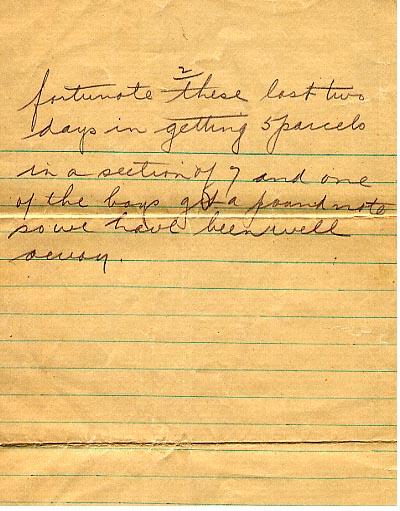 2
fortunate these last two
days in getting 5 parcels
in a section of 7 and one
of the boys got a pound note
so we have been well
away.